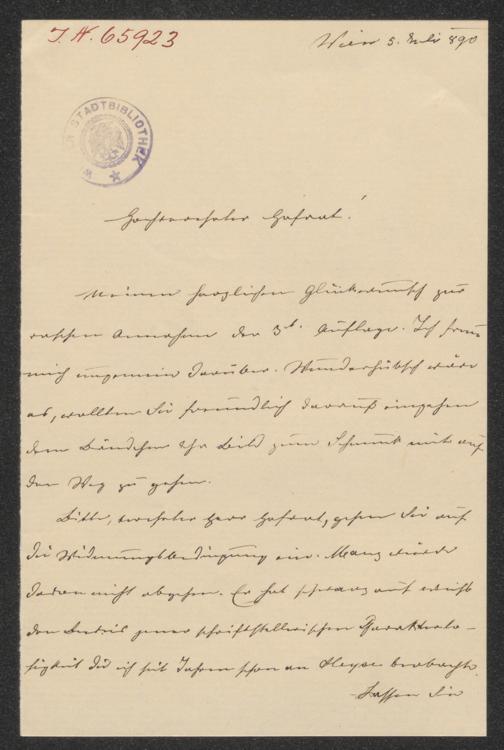 J.N. 65923
Wien 5. Juli 890
STADTBIBLIOTHEK
Hochverehrter Hofrat!
Meinen herzlichen Glückwunsch zur
raschen Annahme der 3t. Auflage. Ich freue
mich ungemein darüber. Wunderhübsch wäre
es, wollten Sie freundlich darauf eingehen
dem Bändchen Ihr Bild zum Schmuck mit auf
den Weg zu geben.
Bitte, verehrter Herr Hofrat, gehen Sie auf
die Widmungsbedingung ein. Manz würde
davon nicht abgehen. Er hat schwarz auf weiß
den Beweis jener schriftstellerischen Charakterlo-
sigkeit die ich seit Jahren schon an Heyse beobachte.
Lassen Sie